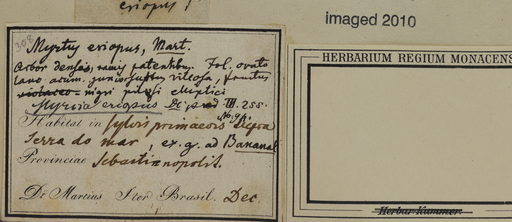 eriopus
imaged 2010
308
Myrtus eriopus, Mart.
Arbor densa, ramis patentibus. Fol. ovato
lanc. acum. junioribus villosa, fructus
violaceo-nigri pilosi elliptici
Myrcia eriopus DC prod III. 255.
No. 94.
Habitat in sylvis primaevis supra
Serra do mar, ex. g. ad Bananal
Provinciae Sebastianopolit.
Dr Martius Iter Brasil. Dec.
HERBARIUM REGIUM MONACENS
Herbar Kummer.